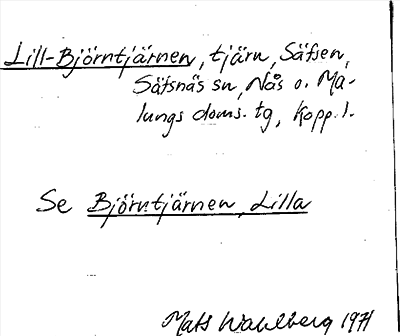 Lill-Björntjärnen, tjärn, Säfsen,
Säfsnäs sn, Nås o. Ma-
lungs doms. tg, Kopp. l.
Se Björntjärnen, Lilla
Mats Wahlberg 1971